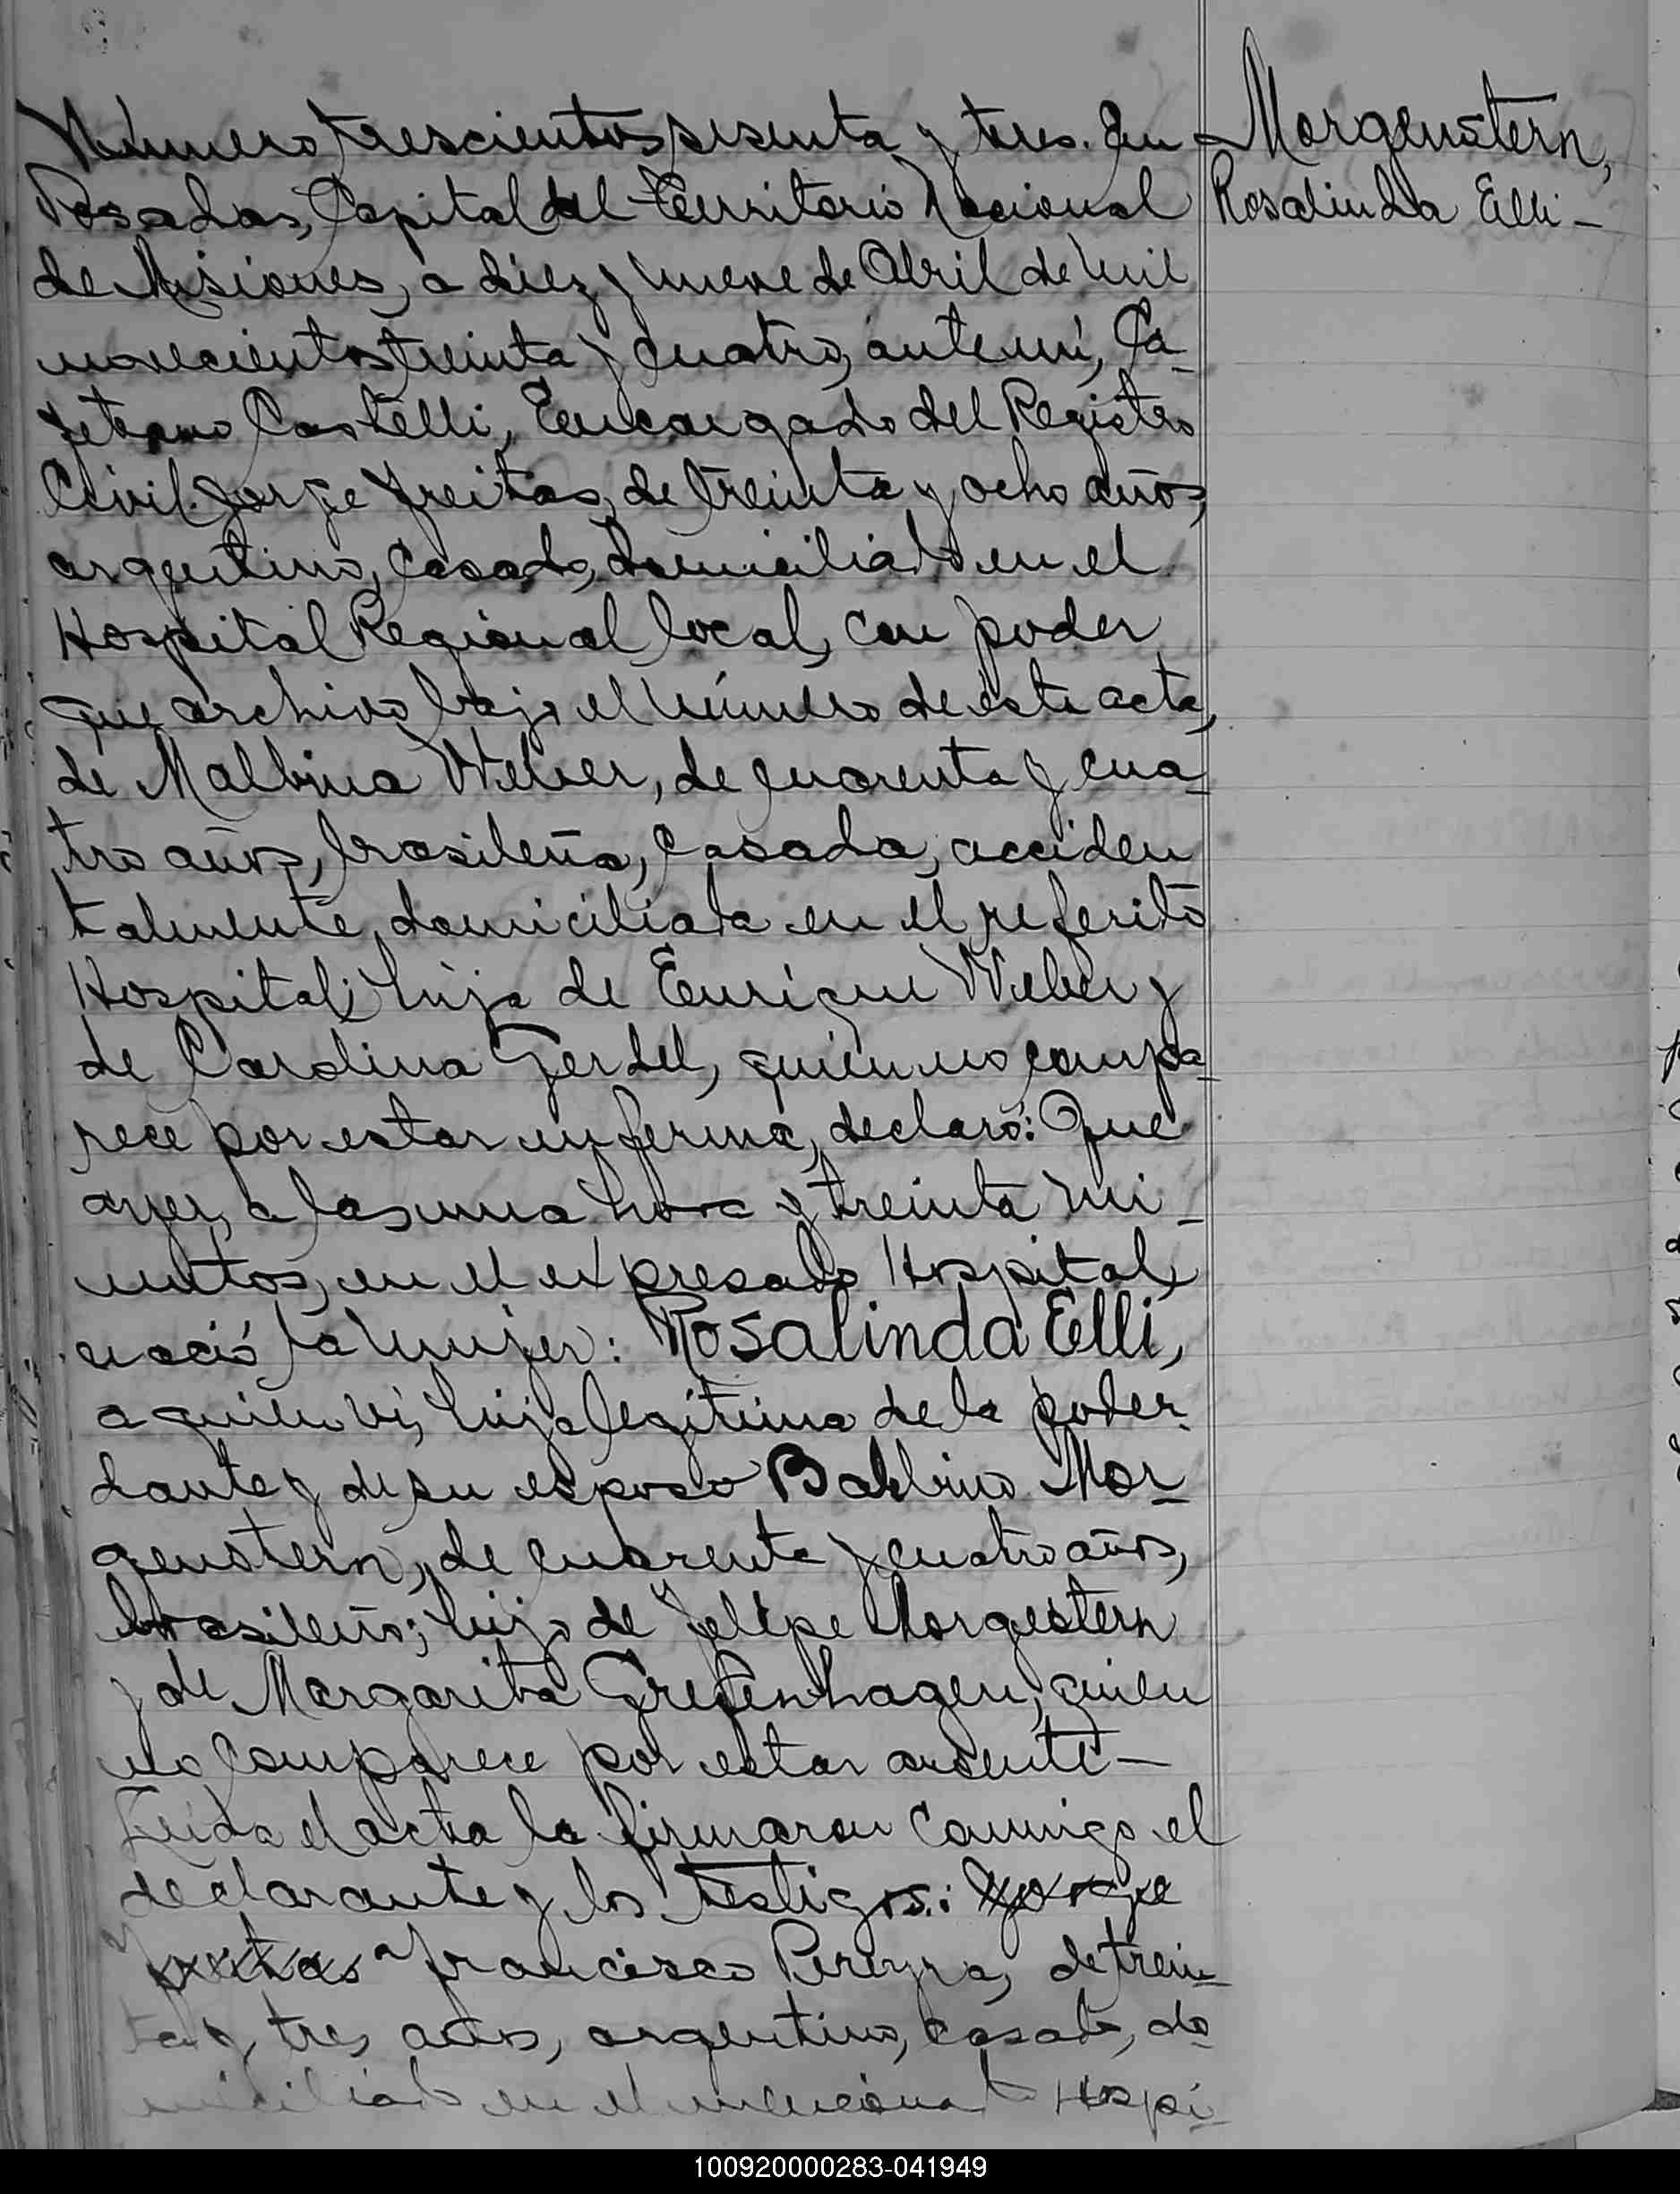 Número trescientos sesenta y tres. En
Posadas, Capital del Territorio Nacional
de Misiones, a diez y nueve de Abril de mil
novecientos treinta y cuatro, ante mí, Ca-
yetano Castelli, Encargado del Registro
Civil. Jorge Freitas, de treinta y ocho años,
argentino, casado, domiciliado en el
Hospital Regional local, con poder
que archivo bajo el número de éste acta,
de Malbina Weber, de cuarenta y cua-
tro años, brasileña, casada, acciden
talmente domiciliada en el referido
Hospital; hija de Enrique Weber y
de Carolina Gerdel, quien no compa-
rece por estar enferma, declaró: Que
ayer, a las una hora y treinta mi-
nutos, en el expresado Hospital,
nació la mujer: Rosalinda Elli,
a quien vi, hija legítima de la poder-
dante y de su esposo Balbino Mor-
genstern, de cuarenta y cuatro años,
brasileño; hijo de Felipe Morgestern
y de Margarita Grefenhagen, quien
no comparece por estar ausente—
Leída el acta la firmaron conmigo el
declarante y los testigos: Jorge
Freitas Francisco Pereyra, de trein-
ta y tres años, argentino, casado, do
miciliado en el mencionado Hospi-
Morgenstern,
Rosalinda Elli-
100920000283-041949